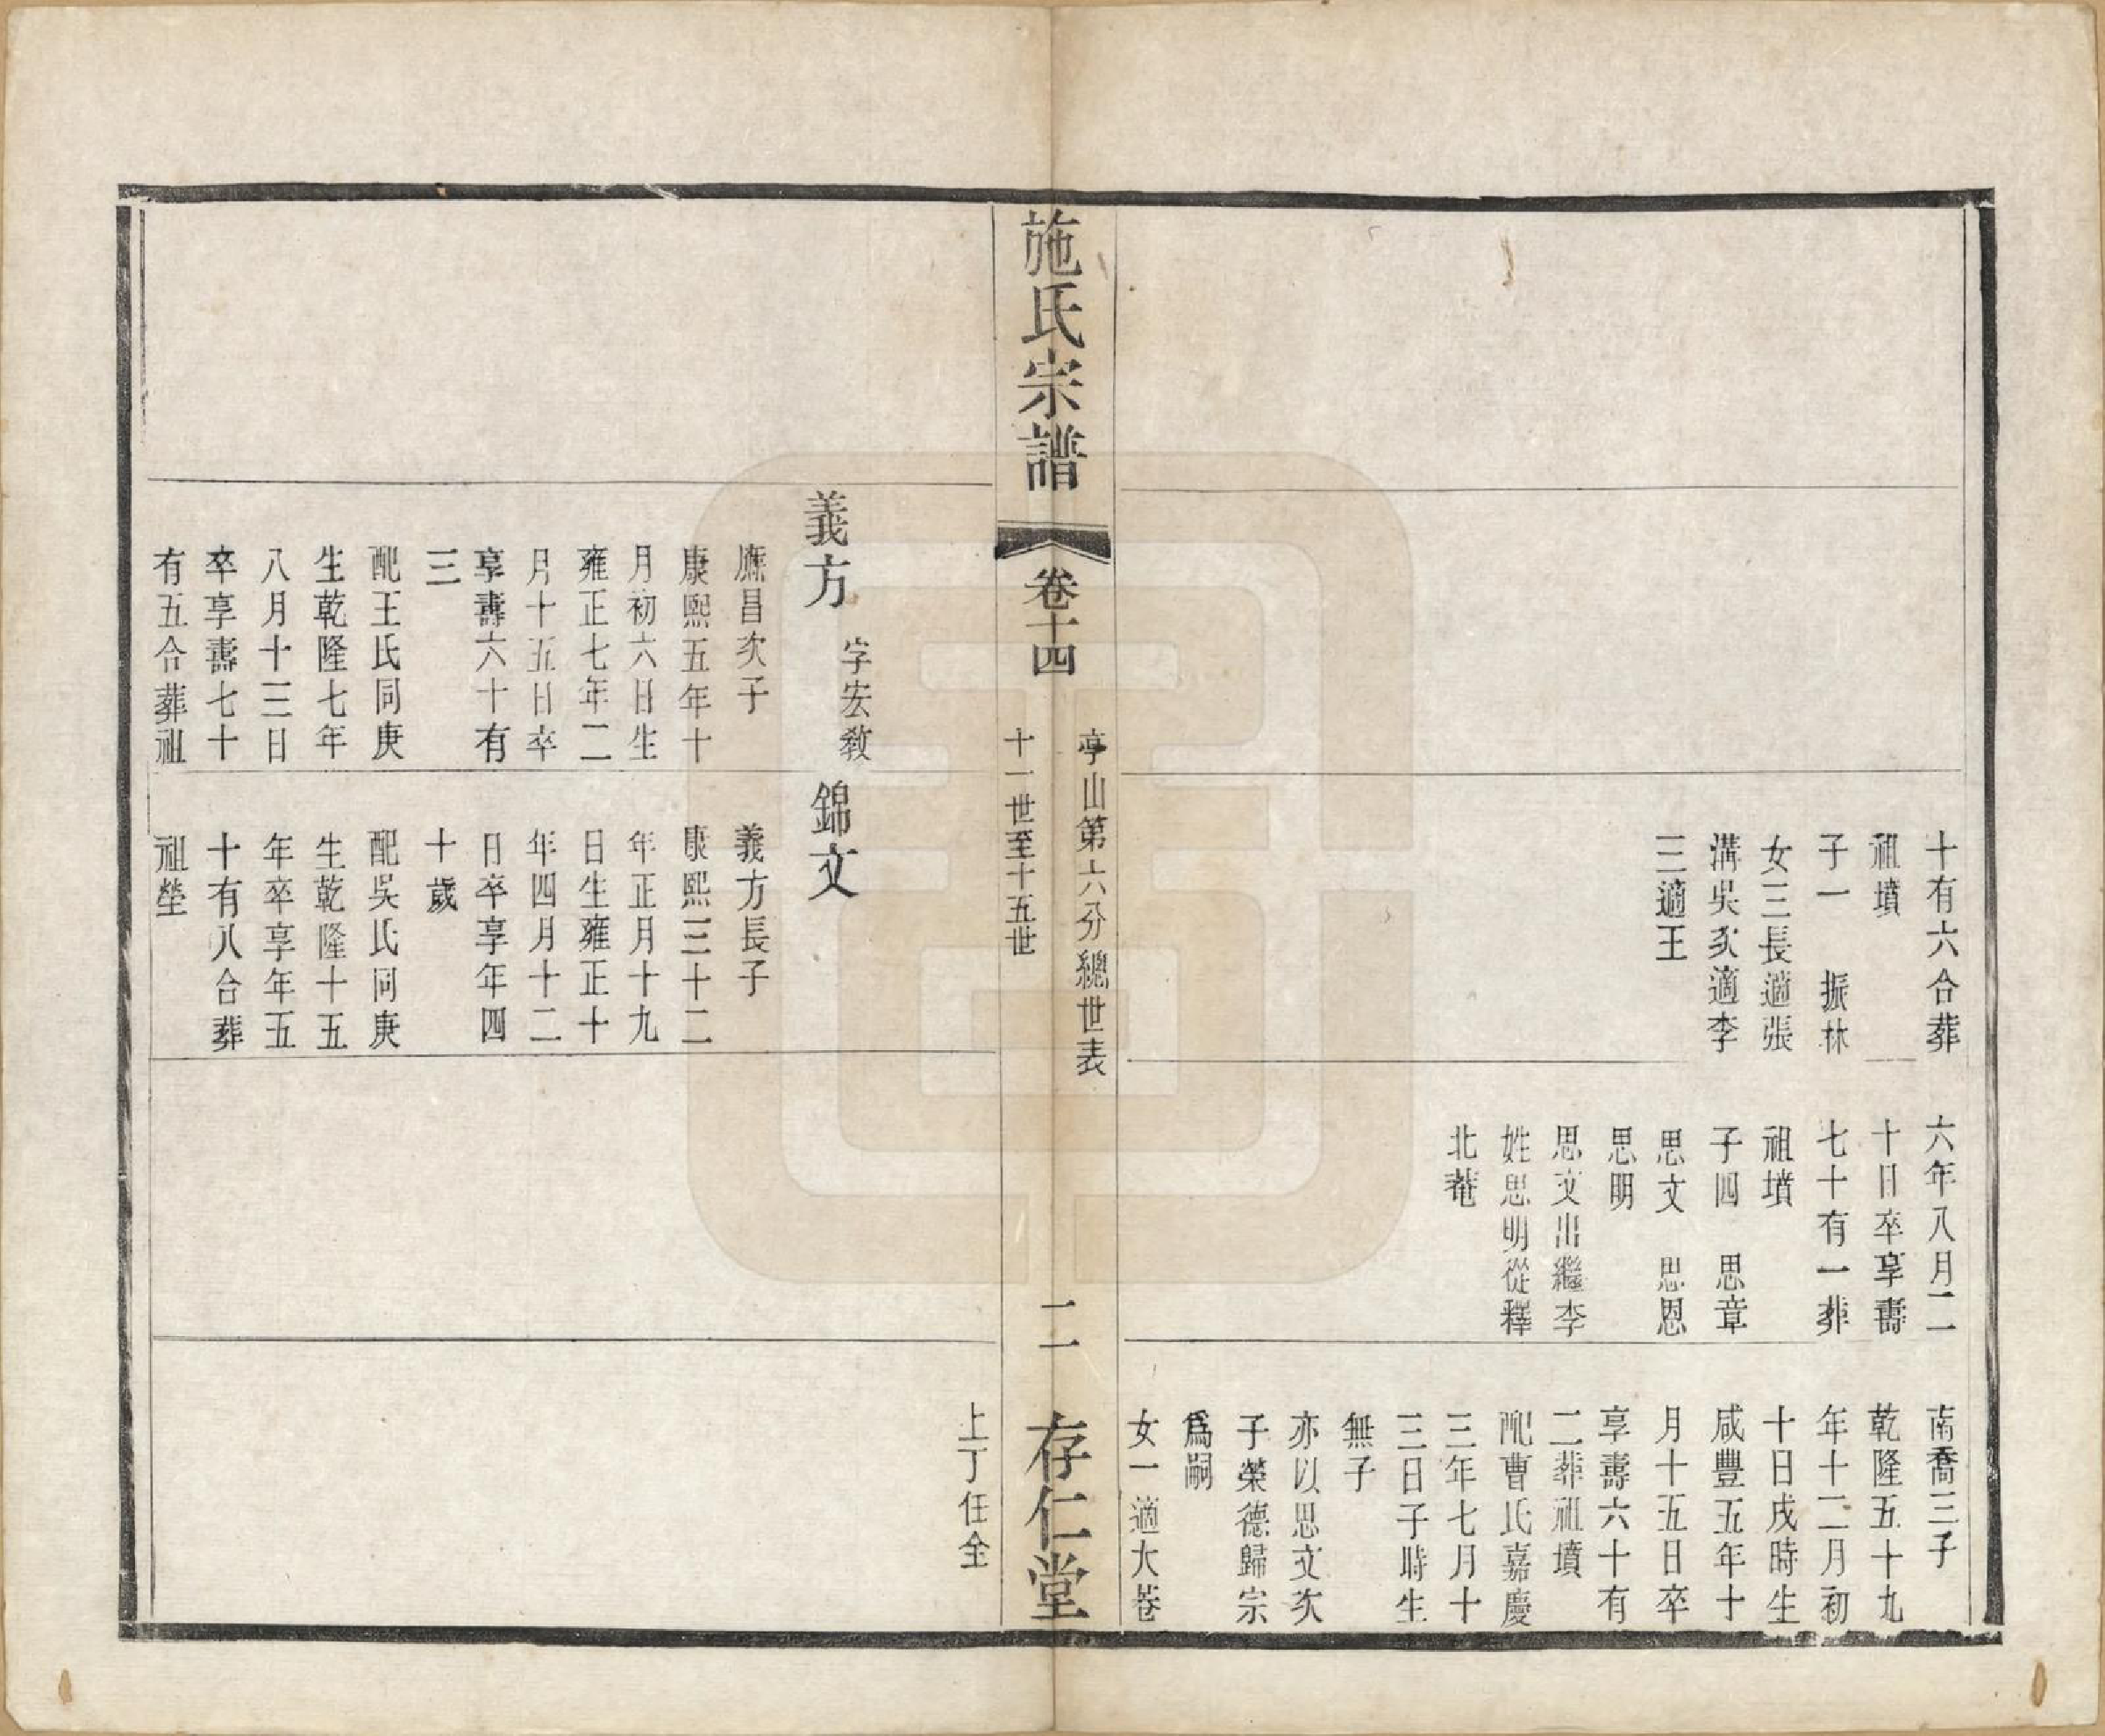 十有六合葬
祖墳
子一　振林
女三長適張
溝吳次適李
三適王
六年八月二
十日卒享壽
七十有一葬
祖墳
子四　思章
思文　思恩
思明
思文出繼李
姓思明從釋
北菴
南喬三子
乾隆五十九
年十二月初
十日戌時生
咸豐五年十
月十五日卒
享壽六十有
二葬祖墳
配曹氏嘉慶
三年七月十
三日子時生
無子
亦以思文次
子榮德歸宗
爲嗣
女一適大巷
施氏宗譜
卷十四
亭山第六分總世表
十一世至十五世
二
存仁堂
上丁任全
義方
字宏教
廡昌次子
康熙五年十
月初六日生
雍正七年二
月十五日卒
享壽六十有
三
配王氏同庚
生乾隆七年
八月十三日
卒享壽七十
有五合葬祖
錦文
義方長子
康熙三十二
年正月十九
日生雍正十
年四月十二
日卒享年四
十歲
配吳氏同庚
生乾隆十五
年卒享年五
十有八合葬
祖塋